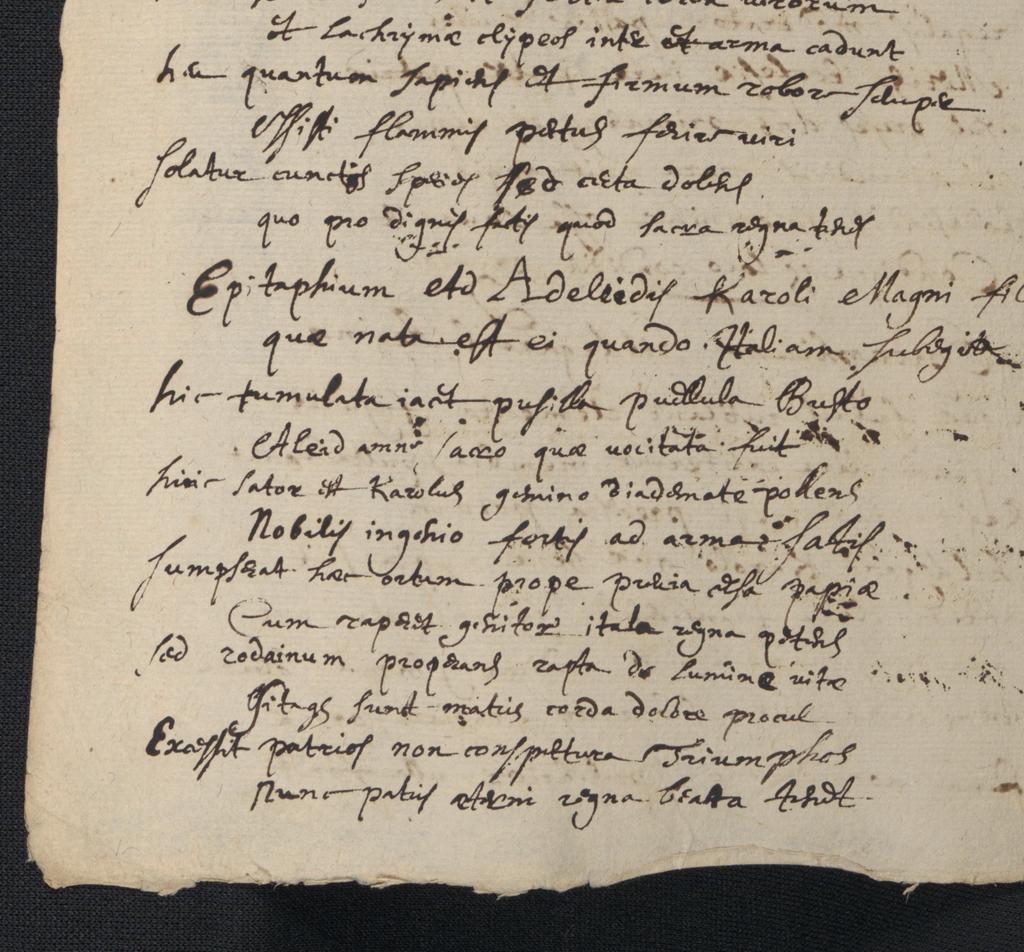 et Lachrymæ clypeos inter et arma cadunt
heu quantum sapiens et firmum robore semper
Affixti flammis pectus ferire viri
solatur cunctos species sed certa dolens
quo pro dignis factis quod sacra regna tenes
Epitaphium Adeleidis Karoli Magni fil
quæ nata est ei quando Italiam subegit
hic tumulata iacet pusilla puellula Busto
Aleid amne sacro quæ vocitata fuit
huic sator est Karolus gemino diademate pollens
Nobilis ingenio fortis ad arma satis
sumpserat hæc ortum prope pavia papiæ
Cum caperet genitor itala regna potens
sed rodainum properans rapta de Lumine vitæ
sunt matris corda dolore procul
Excessit patrios non conspectura Triumphos
Nunc patris æterni regna beata tenet